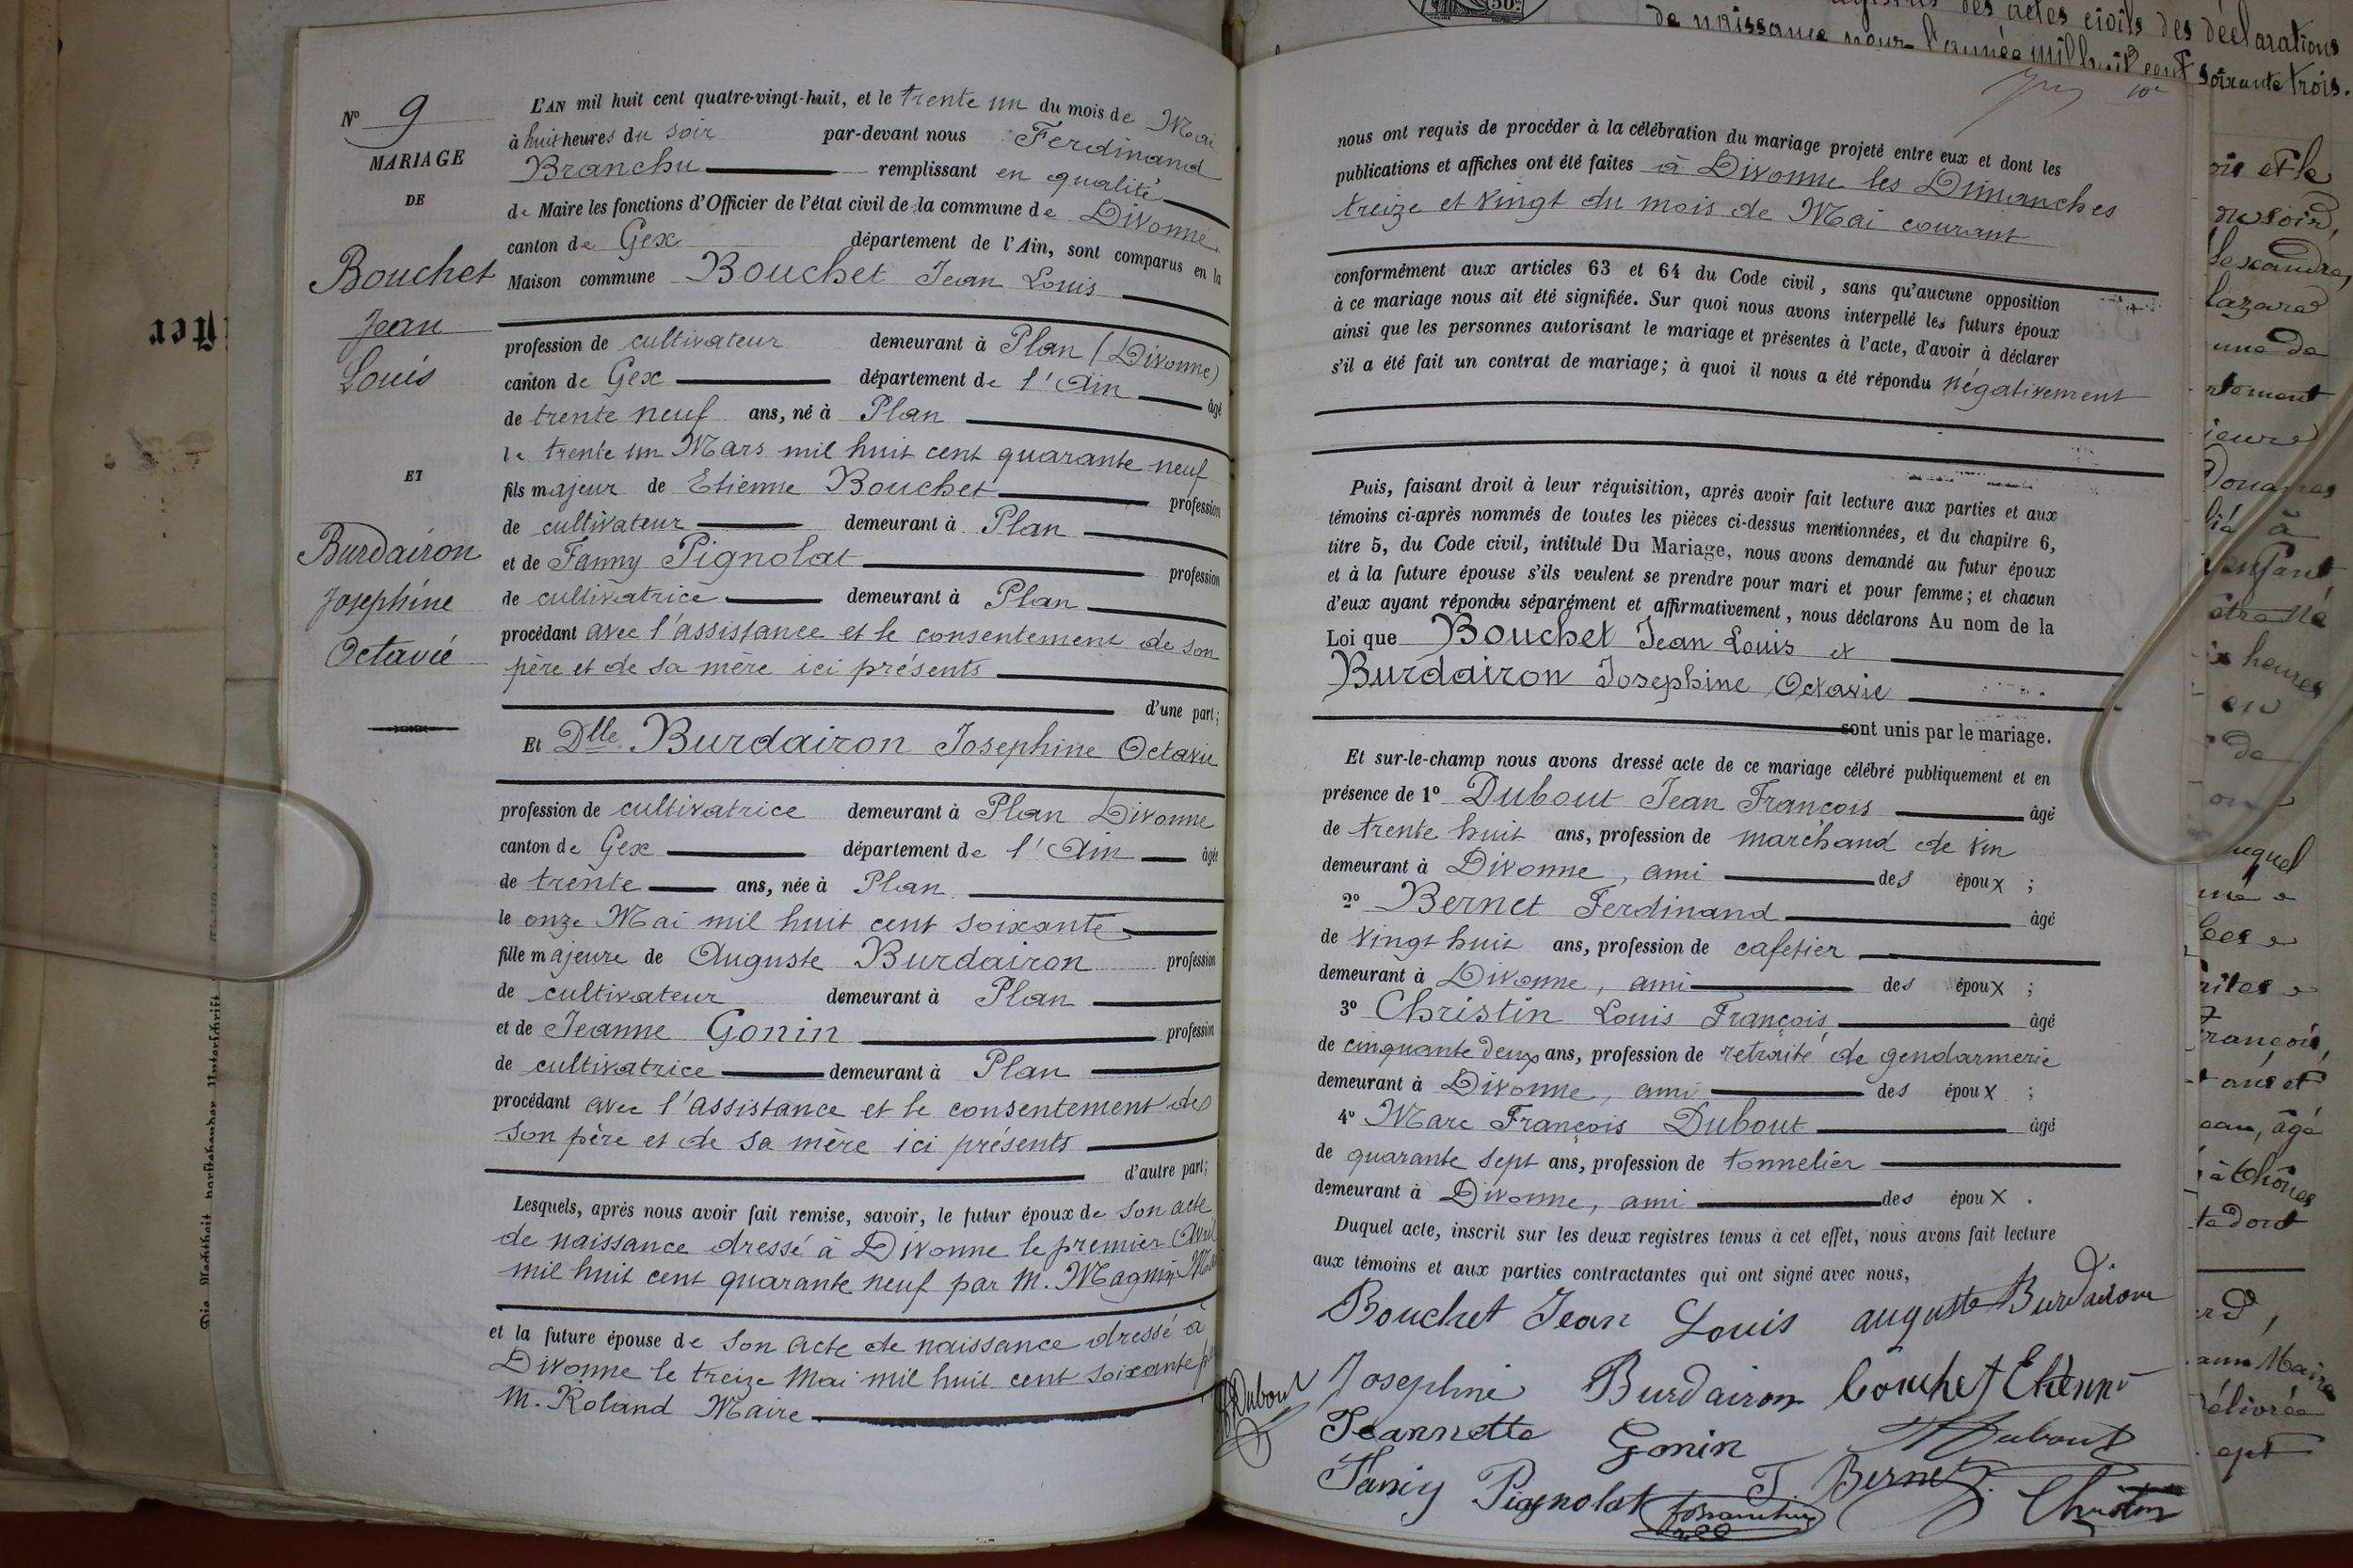 N° 9
MARIAGE
DE
Bouchet
Jean
Louis
ET
Burdairon
Josephine
Octavie
L'AN mil huit cent quatre-vingt-huit, et le trente un du mois de Mai
à huit heures du soir par-devant nous Ferdinand
Branchu remplissant en qualité
de Maire les fonctions d'Officier de l'état civil de la commune de Divonne
canton de Gex département de l'Ain, sont comparus en la
Maison commune Bouchet Jean Louis
profession de cultivateur demeurant à Plan (Divonne)
canton de Gex département de l'Ain âgé
de trente neuf ans, né à Plan
le trente un Mars mil huit cent quarante neuf
fils majeur de Etienne Bouchet profession
de cultivateur demeurant à Plan
et de Fanny Pignolat profession
de cultivatrice demeurant à Plan
procédant avec l'assistance et le consentement de son
père et de sa mère ici présents
d'une part;
Et Dlle Burdairon Josephine Octavie
profession de cultivatrice demeurant à Plan Divonne
canton de Gex département de l'Ain âgée
de trente ans, née à Plan
le onze Mai mil huit cent soixante
fille majeure de Auguste Burdairon profession
de cultivateur demeurant à Plan
et de Jeanne Gonin profession
de cultivatrice demeurant à Plan
procédant avec l'assistance et le consentement de
son père et de sa mère ici présents
d'autre part;
Lesquels, après nous avoir fait remise, savoir, le futur époux de son acte
de naissance dressé à Divonne le premier Avril
mil huit cent quarante neuf par M. Magnin
et la future épouse de son acte de naissance dressé à
Divonne le treize Mai mil huit cent soixante
M. Roland Maire
nous ont requis de procéder à la célébration du mariage projeté entre eux et dont les
publications et affiches ont été faites à Divonne les Dimanches
treize et vingt du mois de Mai courant
conformément aux articles 63 et 64 du Code civil, sans qu'aucune opposition
à ce mariage nous ait été signifiée. Sur quoi nous avons interpellé les futurs époux
ainsi que les personnes autorisant le mariage et présentes à l'acte, d'avoir à déclarer
s'il a été fait un contrat de mariage; à quoi il nous a été répondu négativement
Puis, faisant droit à leur réquisition, après avoir fait lecture aux parties et aux
témoins ci-après nommés de toutes les pièces ci-dessus mentionnées, et du chapitre 6,
titre 5, du Code civil, intitulé Du Mariage, nous avons demandé au futur époux
et à la future épouse s'ils veulent se prendre pour mari et pour femme; et chacun
d'eux ayant répondu séparément et affirmativement, nous déclarons Au nom de la
Loi que Bouchet Jean Louis et
Burdairon Josephine Octavie
sont unis par le mariage.
Et sur-le-champ nous avons dressé acte de ce mariage célébré publiquement et en
présence de 1° Dubout Jean François âgé
de trente huit ans, profession de marchand de vin
demeurant à Divonne, ami des époux ;
2° Bernet Ferdinand âgé
de vingt huit ans, profession de cafetier
demeurant à Divonne, ami des époux ;
3° Christin Louis François âgé
de cinquante deux ans, profession de retraité de gendarmerie
demeurant à Divonne, ami des époux ;
4° Marc François Dubout âgé
de quarante sept ans, profession de tonnelier
demeurant à Divonne, ami des époux .
Duquel acte, inscrit sur les deux registres tenus à cet effet, nous avons fait lecture
aux témoins et aux parties contractantes qui ont signé avec nous,
Bouchet Jean Louis auguste Burdairon
Josephine Burdairon bouchet Etienne
Dubout
Jeannette Gonin Dubout
Fancy Pignolat F. Bernet Christin
de naissance pour l'année mil huit cent soixante trois.